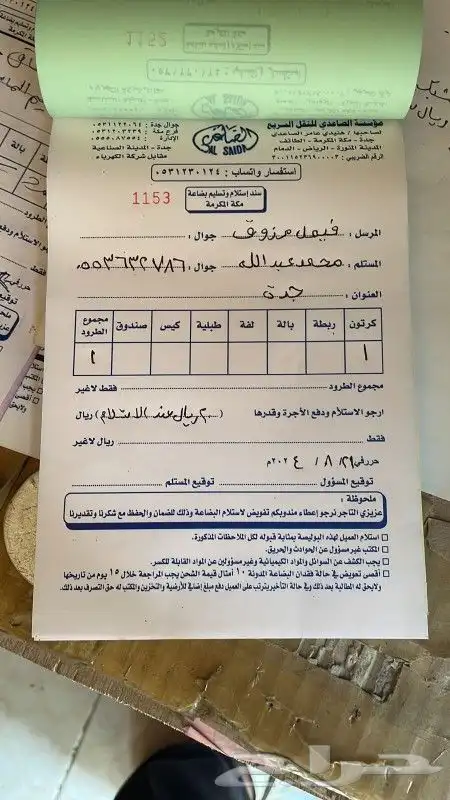 1152
مؤسسة الصاعدي للنقل السريع
لصاحبها / هنيدي عامر الصاعدي
جدة - مكة المكرمة - الطائف
المدينة المنورة - الرياض - الدمام
الرقم الضريبي : ٣٠٠١١٥٢٣٦٩٠٠٠٠٣
الصاعدي
AL SAIDI
جوال جدة : ٠٥٣١١٢٢٠٦٤
فرع مكة : ٠٥٣١٢٠٣٢٣٩
الإدارة : ٠٥٥٥٠٨٧٥٥١
جدة - المدينة الصناعية
مقابل شركة الكهرباء
استفسار واتساب : ٠٥٣١٢٣٠١٢٤
سند إستلام وتسليم بضاعة
مكة المكرمة
1153
المرسل : فيصل مرزوق جوال :
المستلم : محمد عبدالله جوال : ٠٥٥٣٦٣٢٧٨٦
العنوان : جدة
كرتون ربطة بالة لفة طبلية كيس صندوق مجموع الطرود
١ ١
مجموع الطرود فقط لاغير
ارجو الاستلام ودفع الأجرة وقدرها ( ريال عند الاستلام ) ريال
فقط ريال لاغير
حرر في ٢٩ / ٨ / ٢٠٢٤م
توقيع المسؤول توقيع المستلم
ملحوظة :
عزيزي التاجر نرجو إعطاء مندوبكم تفويض لاستلام البضاعة وذلك للضمان والحفظ مع شكرنا وتقديرنا
استلام العميل لهذه البوليصة بمثابة قبوله لكل الملاحظات المذكورة.
المكتب غير مسؤول عن الحوادث والحريق.
يجب الكشف عن السوائل والمواد الكيميائية وغير مسؤولين عن المواد القابلة للكسر.
أقصى تعويض في حالة فقدان البضاعة المدونة ١٠ أمثال قيمة الشحن يجب المراجعة خلال ١٥ يوم من تاريخها
ولايحق له المطالبة بعد ذلك وفي حالة التأخير يترتب على العميل دفع مبلغ إضافي للأرضية والتخزين والمكتب له حق التصرف بعد ذلك.
حراج